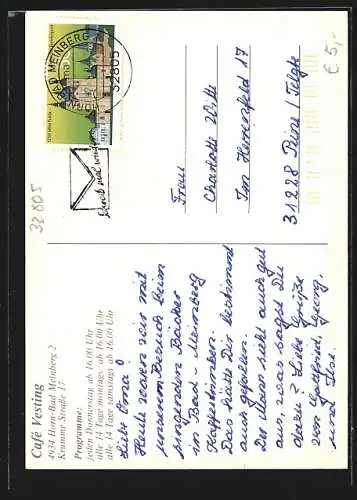 Café Vesting
4934 Horn-Bad Meinberg 2
Krumme Straße 17
Programme:
jeden Donnerstag ab 16.00 Uhr
alle 14 Tage montags ab 16.00 Uhr
alle 14 Tage samstags ab 16.00 Uhr
Liebe Oma!
Heute waren wir mit
unserem Besuch beim
singenden Bäcker
in Bad-Meinberg
Kaffeetrinken.
Das hätte Dir bestimmt
auch gefallen.
Der Mann sieht auch gut
aus, was sagst Du
dazu? Liebe Grüße
von Gottfried, Georg,
und Ilse.
BAD MEINBERG
32805
Schreib mal wieder
Frau
Charlotte Witte
Im Herrenfeld 17
31228 Peine/Telgte
32805
€ 5,-